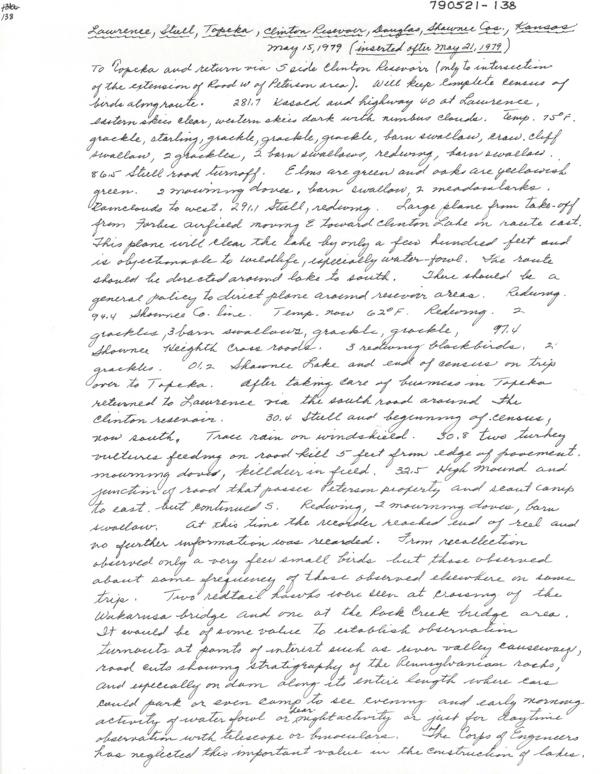 790521-138
138
Lawrence, Stull, Topeka, Clinton Resevoir, Douglas, Shawnee Cos., Kansas
May 15, 1979 (inserted after May 21, 1979)
To Topeka and return via S side Clinton Resevoir (only to intersection
of the extension of Road W of Peterson area). Will keep complete census of
birds along route. 281.7 Kasold and highway 40 at Lawrence,
eastern skies clear, western skies dark with nimbus clouds. Temp. 75°F.
grackle, starling, grackle, grackle, grackle, barn swallow, crow, cliff
swallow, 2 grackles, 2 barn swallows, redwing, barn swallow.
86.5 Stull road turnoff. Elms are green and oaks are yellowish
green. 2 mourning doves, barn swallow, 2 meadowlarks.
Rainclouds to west. 291.1 Stull, redwing. Large plane from take-off
from Forbes airfield moving E toward Clinton Lake on route east.
This plane will clear the lake by only a few hundred feet and
is objectionable to wildlife, especially water-fowl. The route
should be directed around lake to south. There should be a
general policy to direct plane around resevoir areas. Redwing.
94.4 Shawnee Co. line. Temp. now 62°F. Redwing. 2
grackles, 3 barn swallows, grackle, grackle, 97.4
Shawnee Heighth Cross roads. 3 redwing blackbirds. 2
grackles. 01.2 Shawnee Lake and end of census on trip
over to Topeka. After taking care of business in Topeka
returned to Lawrence via the south road around the
Clinton reservoir. 30.4 Stull and beginning of census,
now south. Trace rain on windshield. 30.8 two turkey
vultures feeding on road kill 5 feet from edge of pavement.
mourning doves, killdeer in field. 32.5 High Mound and
junction of road that passes Peterson property and scout camp
to east. but continued S. Redwing, 2 mourning doves, barn
swallow. At this time the recorder reached end of reel and
no further information was recorded. From recollection
observed only a very few small birds but those observed
about same frequency of those observed elsewhere on same
trip. Two redtail hawks were seen at crossing of the
Wakarusa bridge and one at the Rock Creek bridge area.
It would be of some value to establish observation
turnouts at points of interest such as river valley causeways,
road cuts showing stratigraphy of the Pennsylvanian rocks,
and especially on dam along its entire length where cars
could park or even camp to see evening and early morning
activity of water fowl or hear night activity or just for daytime
observation with telescope or binoculars. The Corps of Engineers
has neglected this important value in the construction of lakes.